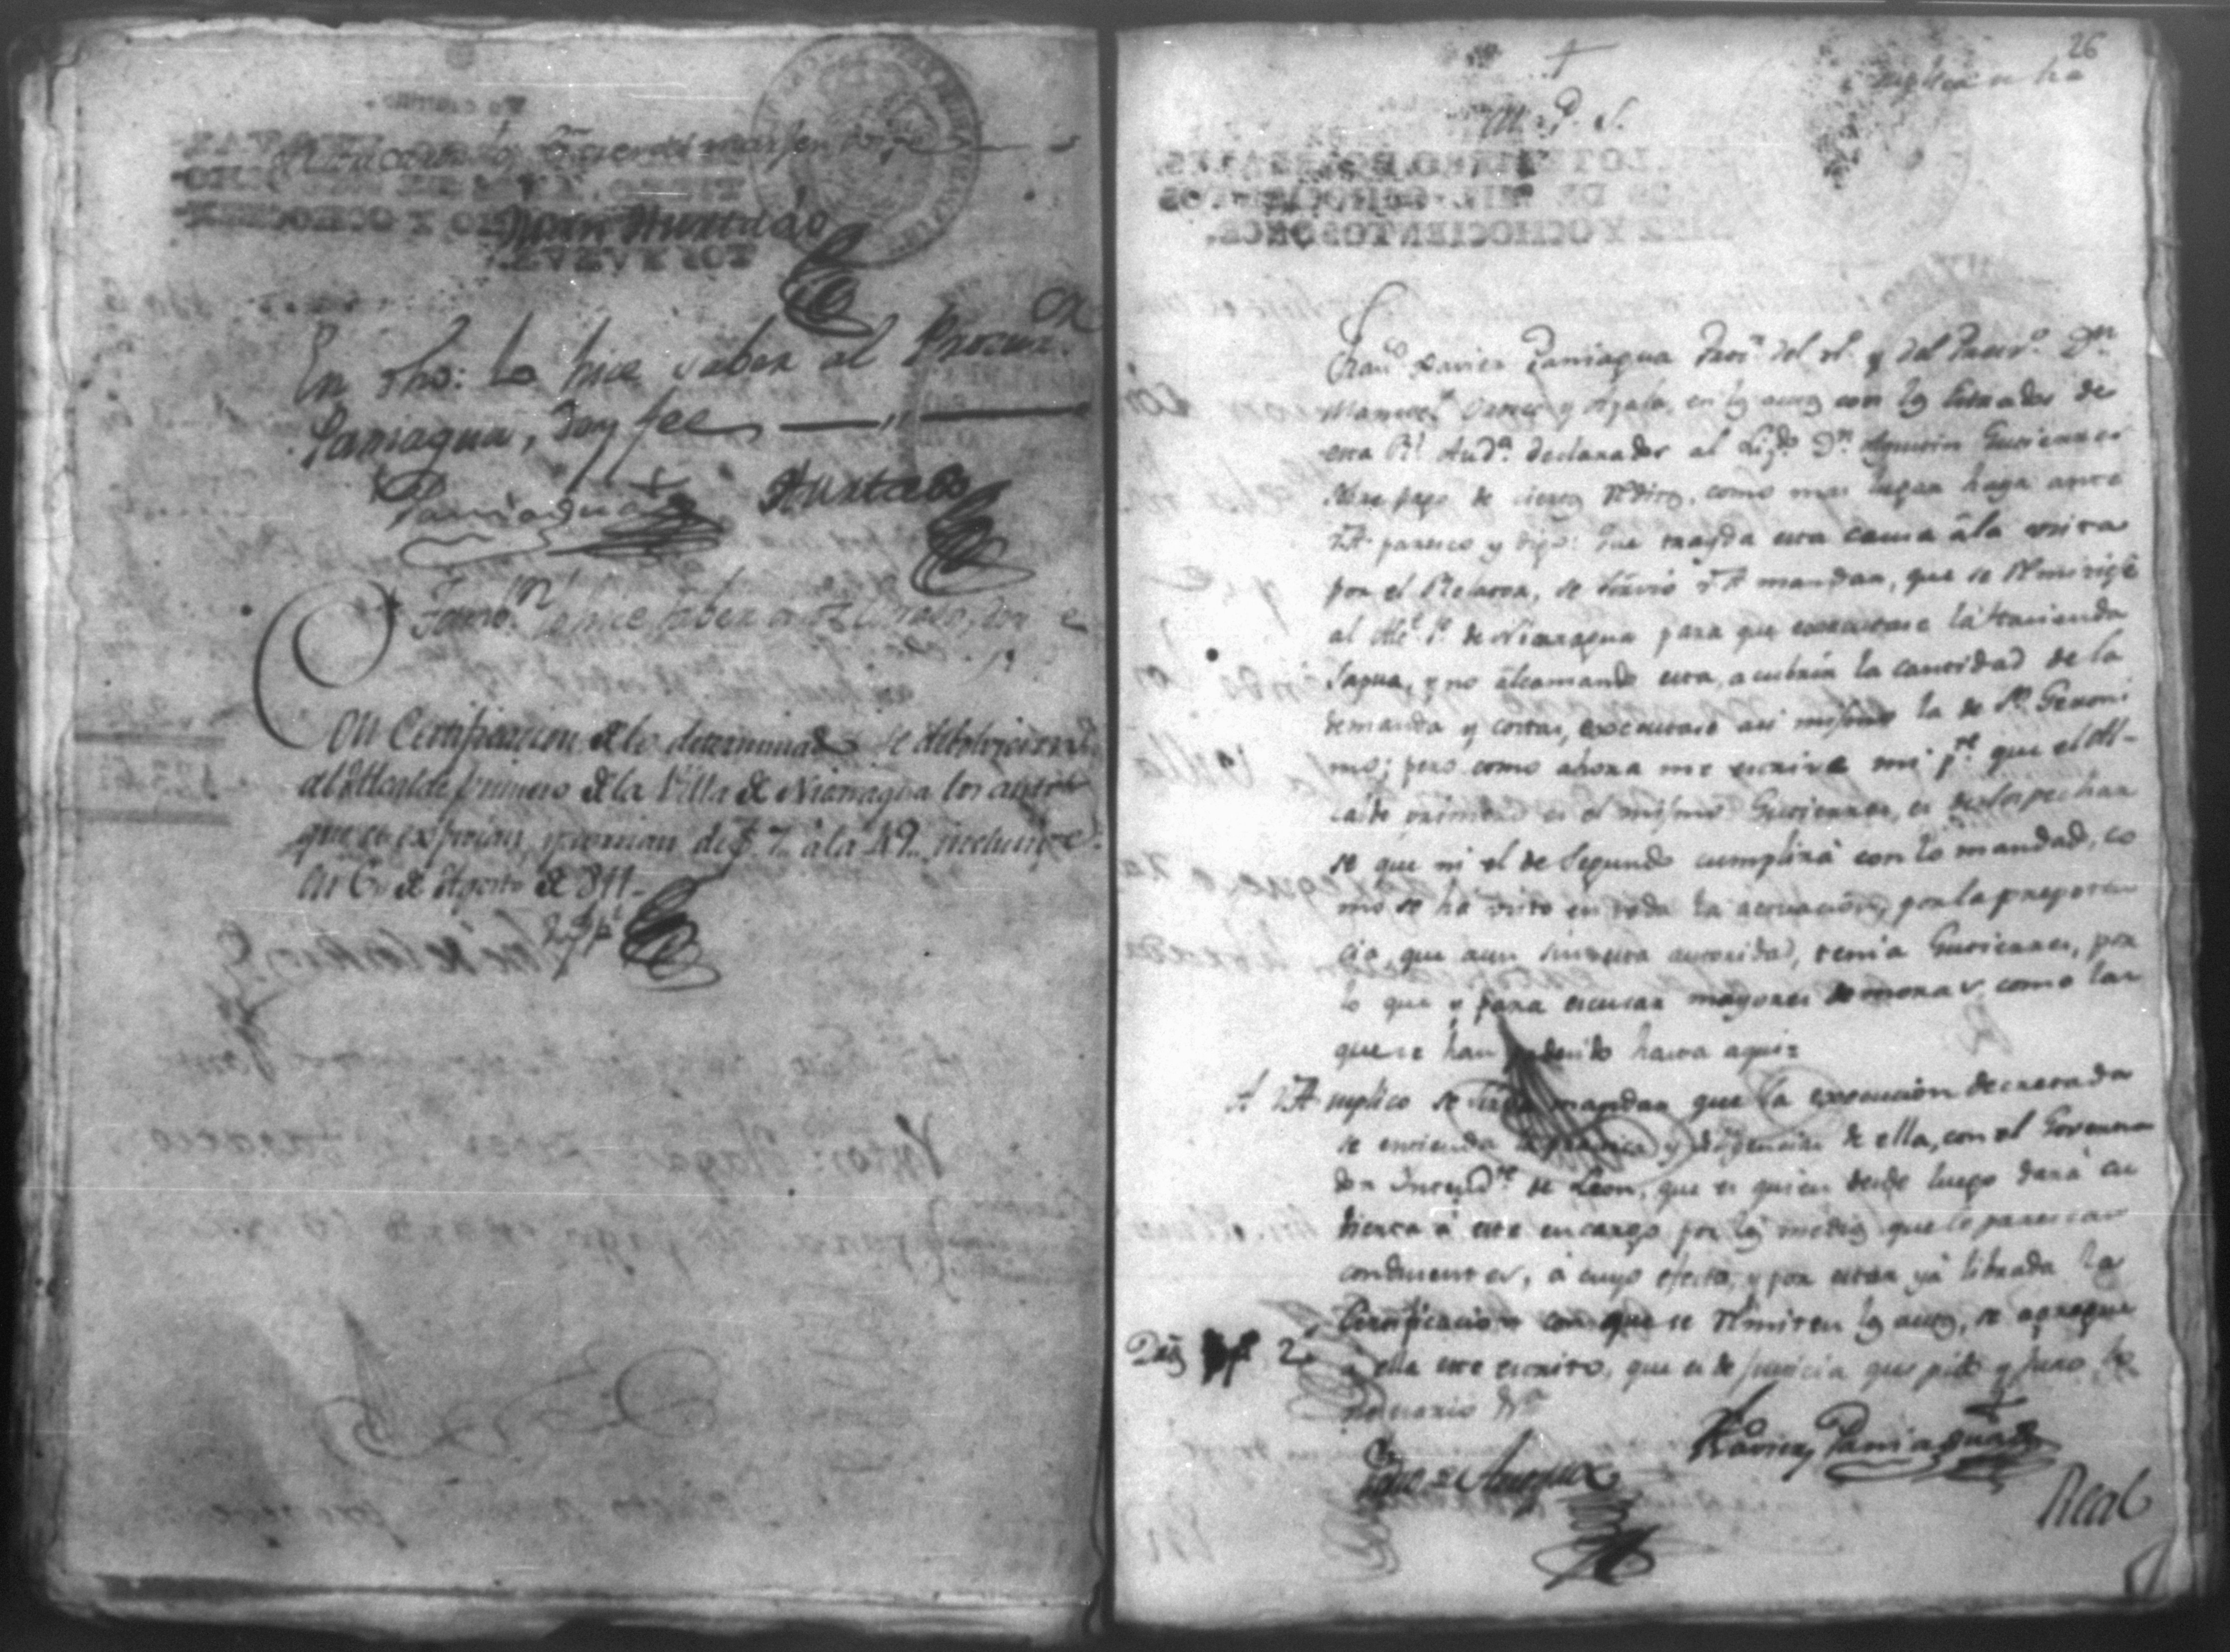 Juan Hurtado
En dho: Lo hice saber al Procur.
Paniagua, doy fee
Paniagua Hurtado
lo hice saber
Con Certificacion de lo determinado se debolvieron
al Alcalde primero de la Villa de Nicaragua los autos
que se expresan, y corrian de f. 7. à la 49. inclusive.
en 6. de Agosto de 811.
26
M. P. S.
Franco. Xavier Paniagua Procr. del nl. y del Presvo. Dn
Manuel y Ayala, en los autos con los Estrados de
esta Rl. Auda. declarados al Lizdo. Dn. Agustin Gutierrez
sobre pago de ciertos réditos, como mas lugar haya ante
VA. paresco y digo: Que trayda esta causa â la vista
por el Relator, se sirvió VA mandar, que se remitiese
al Ale. 1o. de Nicaragua para que executase la Hacienda
Sapua, y no alcansando esta, a cubrir la cantidad de la
demanda y costas, executase asi mismo la de Sn. Geroni
mo; pero como ahora me escrive mi pte. que el Al-
calde primero es el mismo Gutierrez, es de sospechar
se que ni el de Segundo cumplirá con lo mandado, co
mo se ha visto en toda la actuacion, por la prepoten
cia, que aun sin esta autoridad, tenia Gutierrez, por
lo que y para escusar mayores demoras como las
que se han padecido hasta aqui=
A VA suplico se sirva mandar que la execucion decretada
se entienda la practica y diligencias de ella, con el Governa
dor Intendte. de Leon, que es quien desde luego dará cu
bierta á este encargo por los medios que le parescan
conducentes, á cuyo efecto, y por estar yá librada la
Certificacion con que se remiten los autos, se agregue
a ella este escrito, que es de justicia que pido y juro lo
necesario &a
Xavier Paniagua
Real